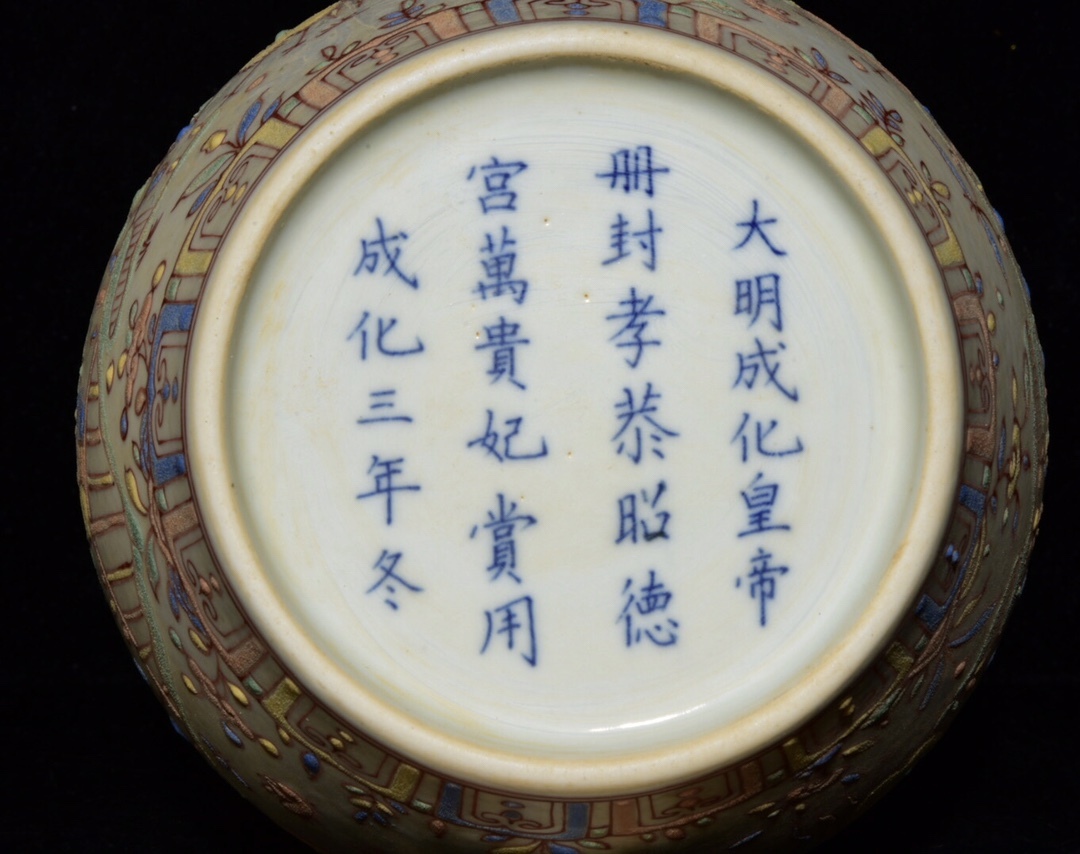 大明成化皇帝
册封孝恭昭德
宮萬貴妃賞用
成化三年冬